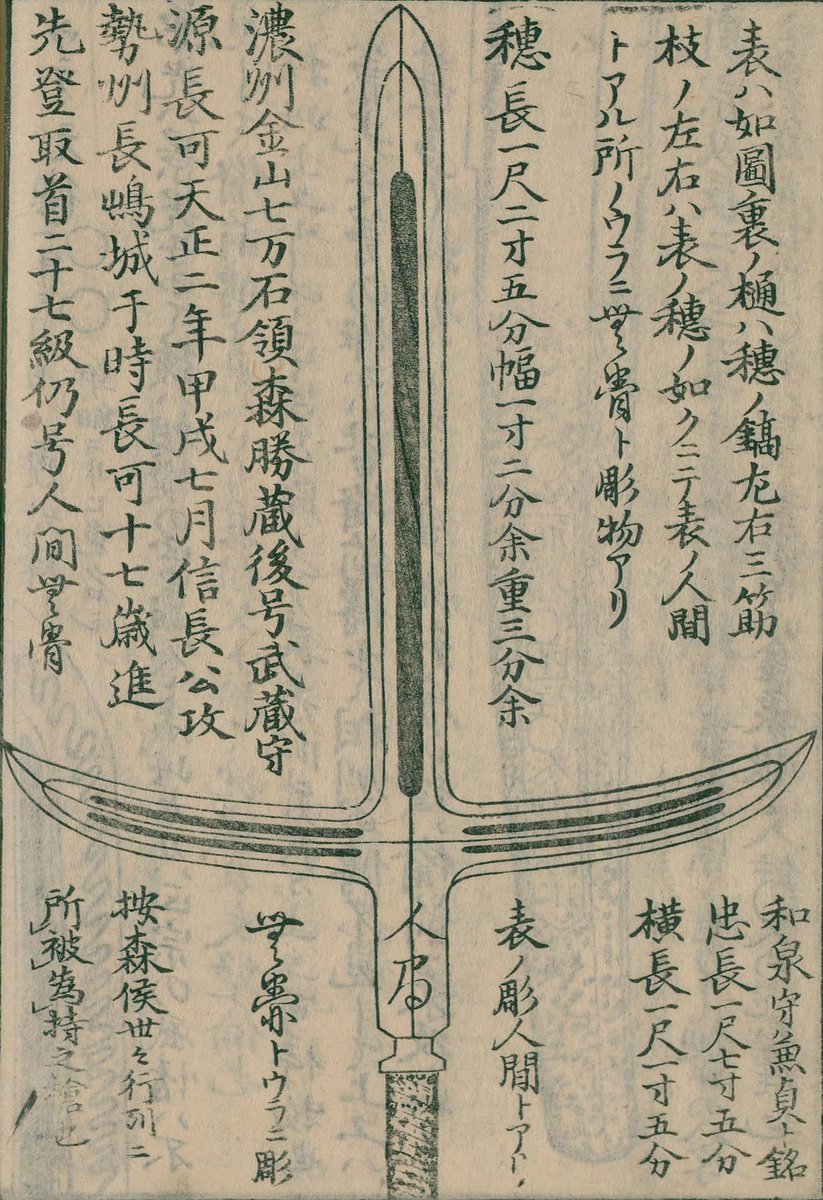 表ハ如圖裏ノ樋ハ穗ノ鎬左右三筋
枝ノ左右ハ表ノ穗ノ如クニテ表ノ人間
トアル所ノウラニ無骨ト彫物アリ
穗長一尺二寸五分幅一寸二分余重三分余
濃州金山七万石領森勝蔵後号武蔵守
源長可天正二年甲戌七月信長公攻
勢州長嶋城于時長可十七歳進
先登取首二十七級仍号人間無骨
和泉守兼貞ト銘
忠長一尺七寸五分
横長一尺一寸五分
表ノ彫人間トアリ
人間
無骨トウラニ彫
按森侯世々行列ニ
所被為持之槍也